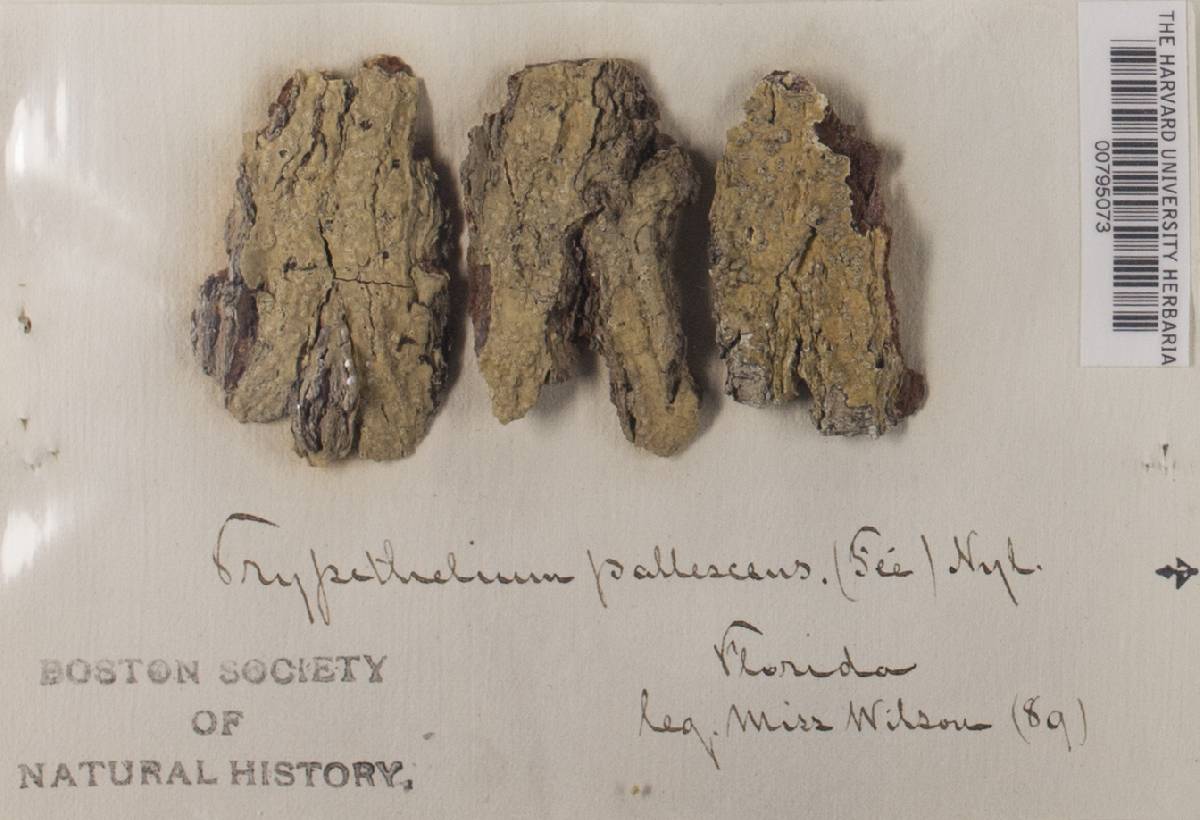 THE HARVARD UNIVERSITY HERBARIA
00795073
Trypethelium pallescens. (Féé) Nyl.
Florida
leg. Miss Wilson (89)
BOSTON SOCIETY
OF
NATURAL HISTORY.